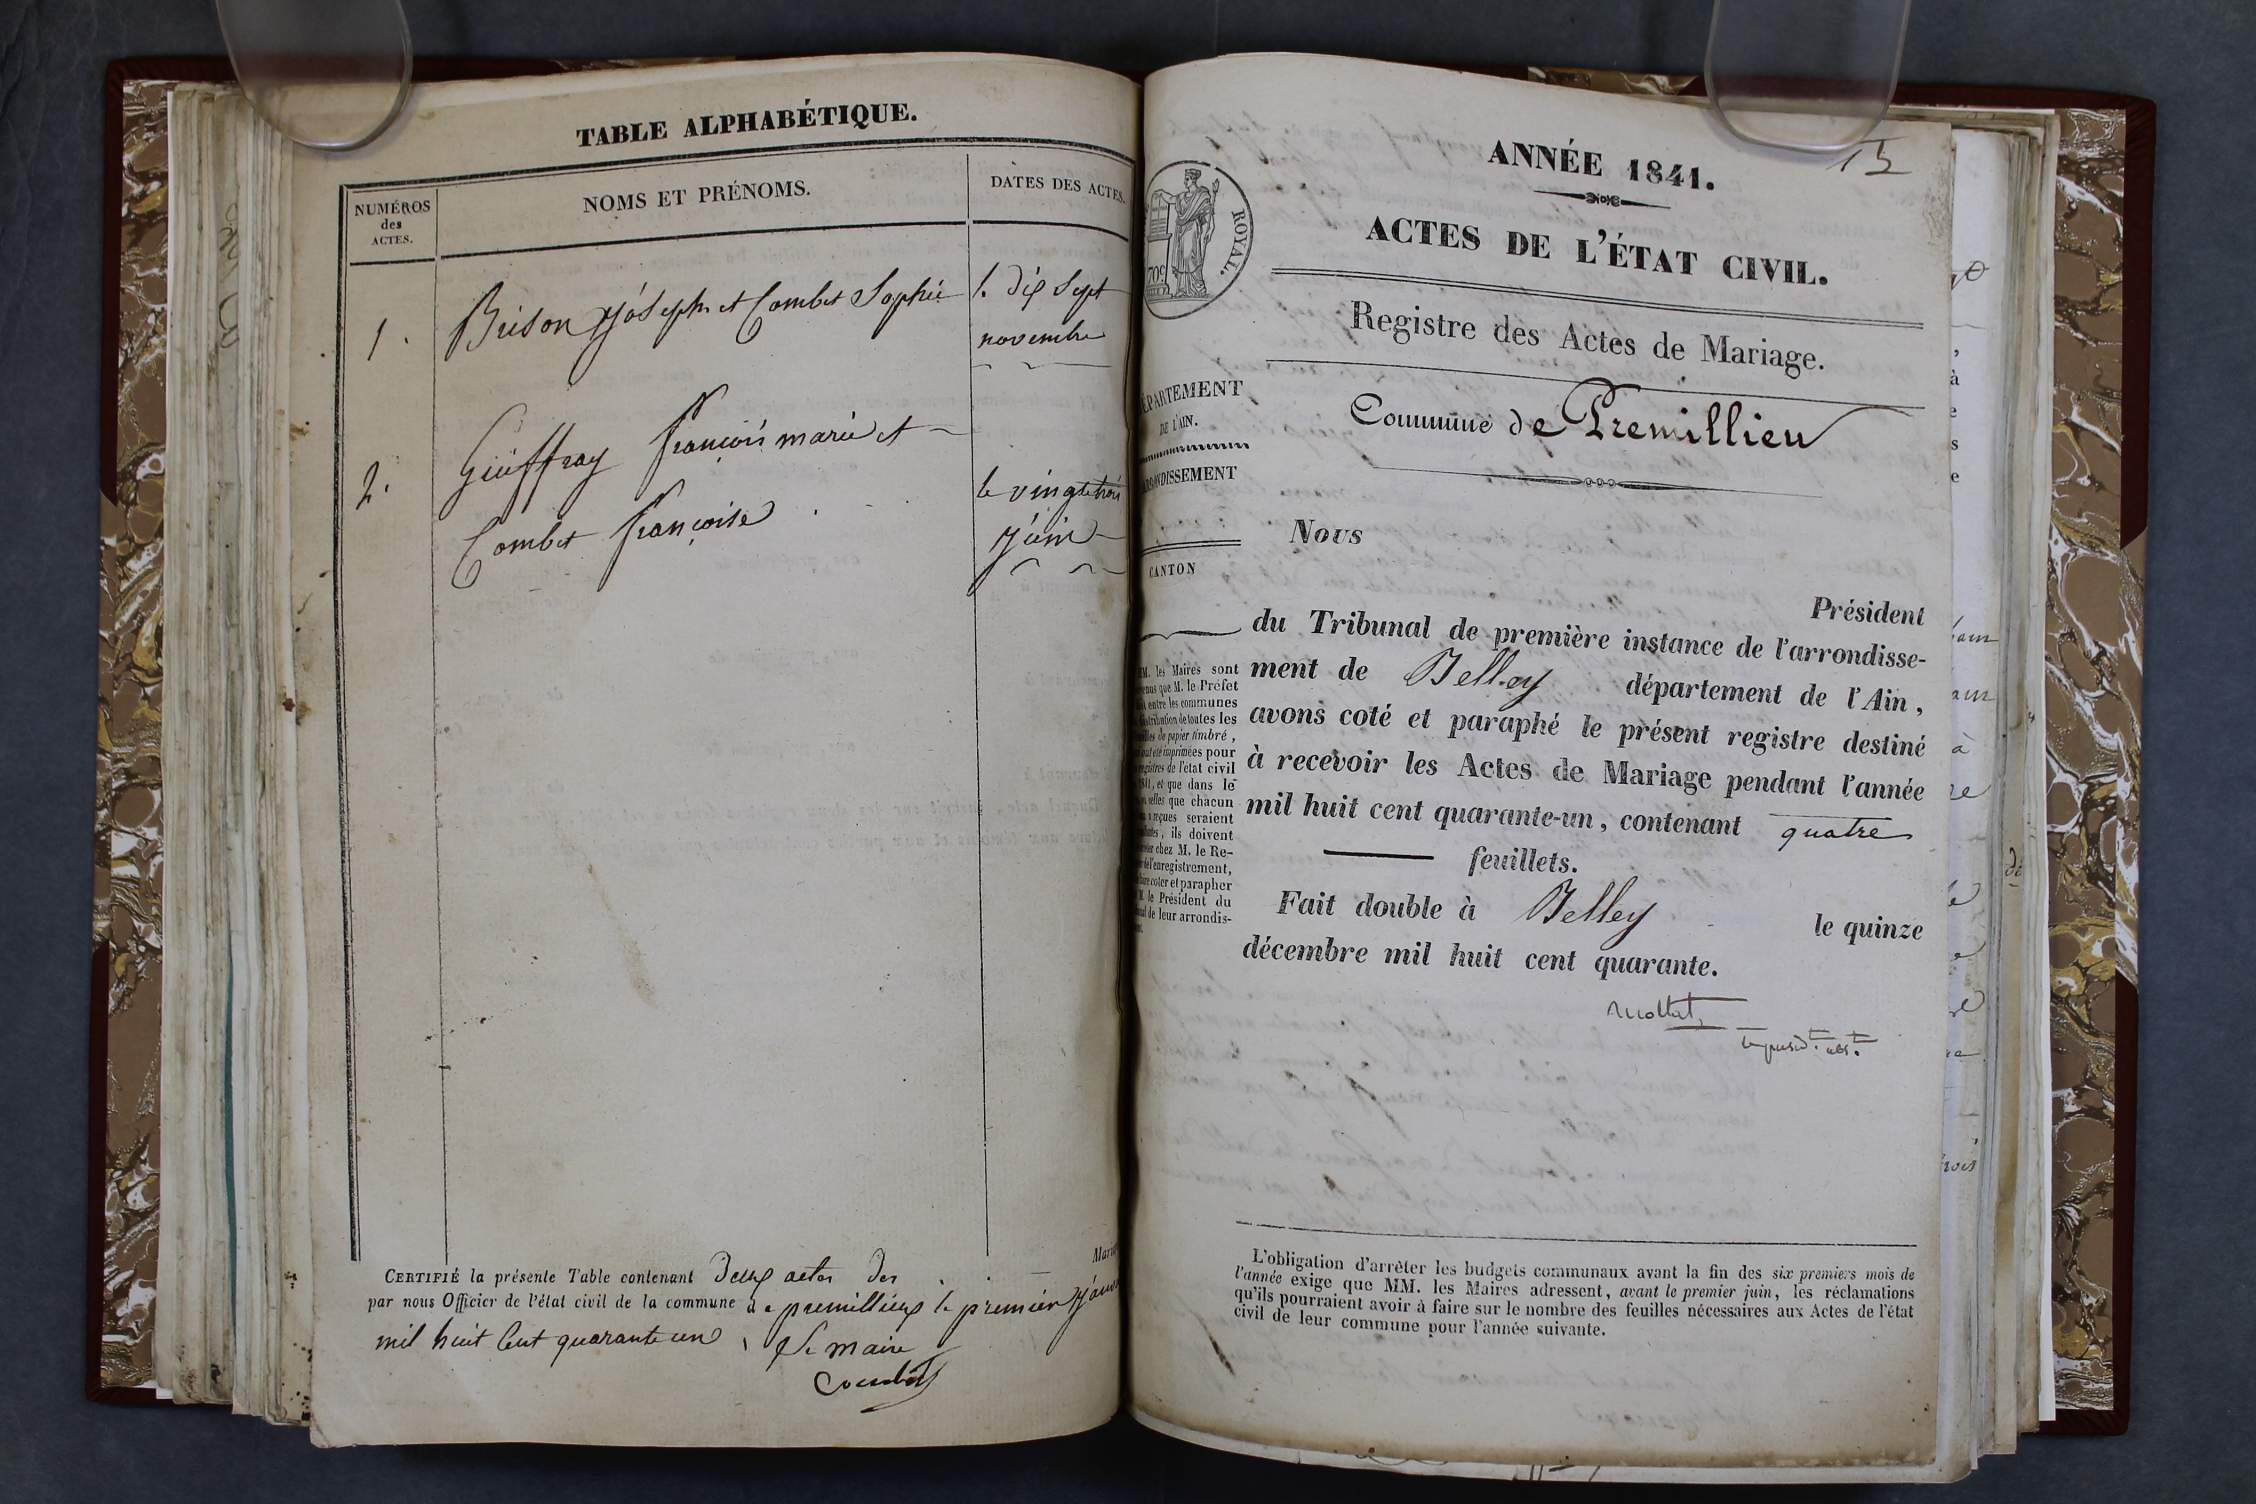 TABLE ALPHABÉTIQUE.
NUMÉROS
des
ACTES.
NOMS ET PRÉNOMS.
DATES DES ACTES.
1.
Brison Joseph et Combet Sophie
le dix Sept
novembre
2.
François marie et
Combet françoise
le vingt trois
Juin
CERTIFIÉ la présente Table contenant Deux actes Des
par nous Officier de l'état civil de la commune de premillieu le premier
mil huit Cent quarante un, le maire
Combet
ANNÉE 1841.
15
ACTES DE L'ÉTAT CIVIL.
ROYAL.
70c
Registre des Actes de Mariage.
DÉPARTEMENT
DE L'AIN.
Commune de Premillieu
ARRONDISSEMENT
CANTON
Nous
Président
du Tribunal de première instance de l'arrondisse-
ment de Belley département de l'Ain,
avons coté et paraphé le présent registre destiné
à recevoir les Actes de Mariage pendant l'année
mil huit cent quarante-un, contenant quatre
feuillets.
Fait double à Belley le quinze
décembre mil huit cent quarante.
MM. les Maires sont
que M. le Préfet
entre les communes
distribution de toutes les
de papier timbré,
été imprimées pour
registres de l'état civil
1841, et que dans le
que chacun
reçues seraient
ils doivent
chez M. le Re-
de l'enregistrement,
faire coter et parapher
M. le Président du
de leur arrondis-
L'obligation d'arrêter les budgets communaux avant la fin des six premiers mois de
l'année exige que MM. les Maires adressent, avant le premier juin, les réclamations
qu'ils pourraient avoir à faire sur le nombre des feuilles nécessaires aux Actes de l'état
civil de leur commune pour l'année suivante.